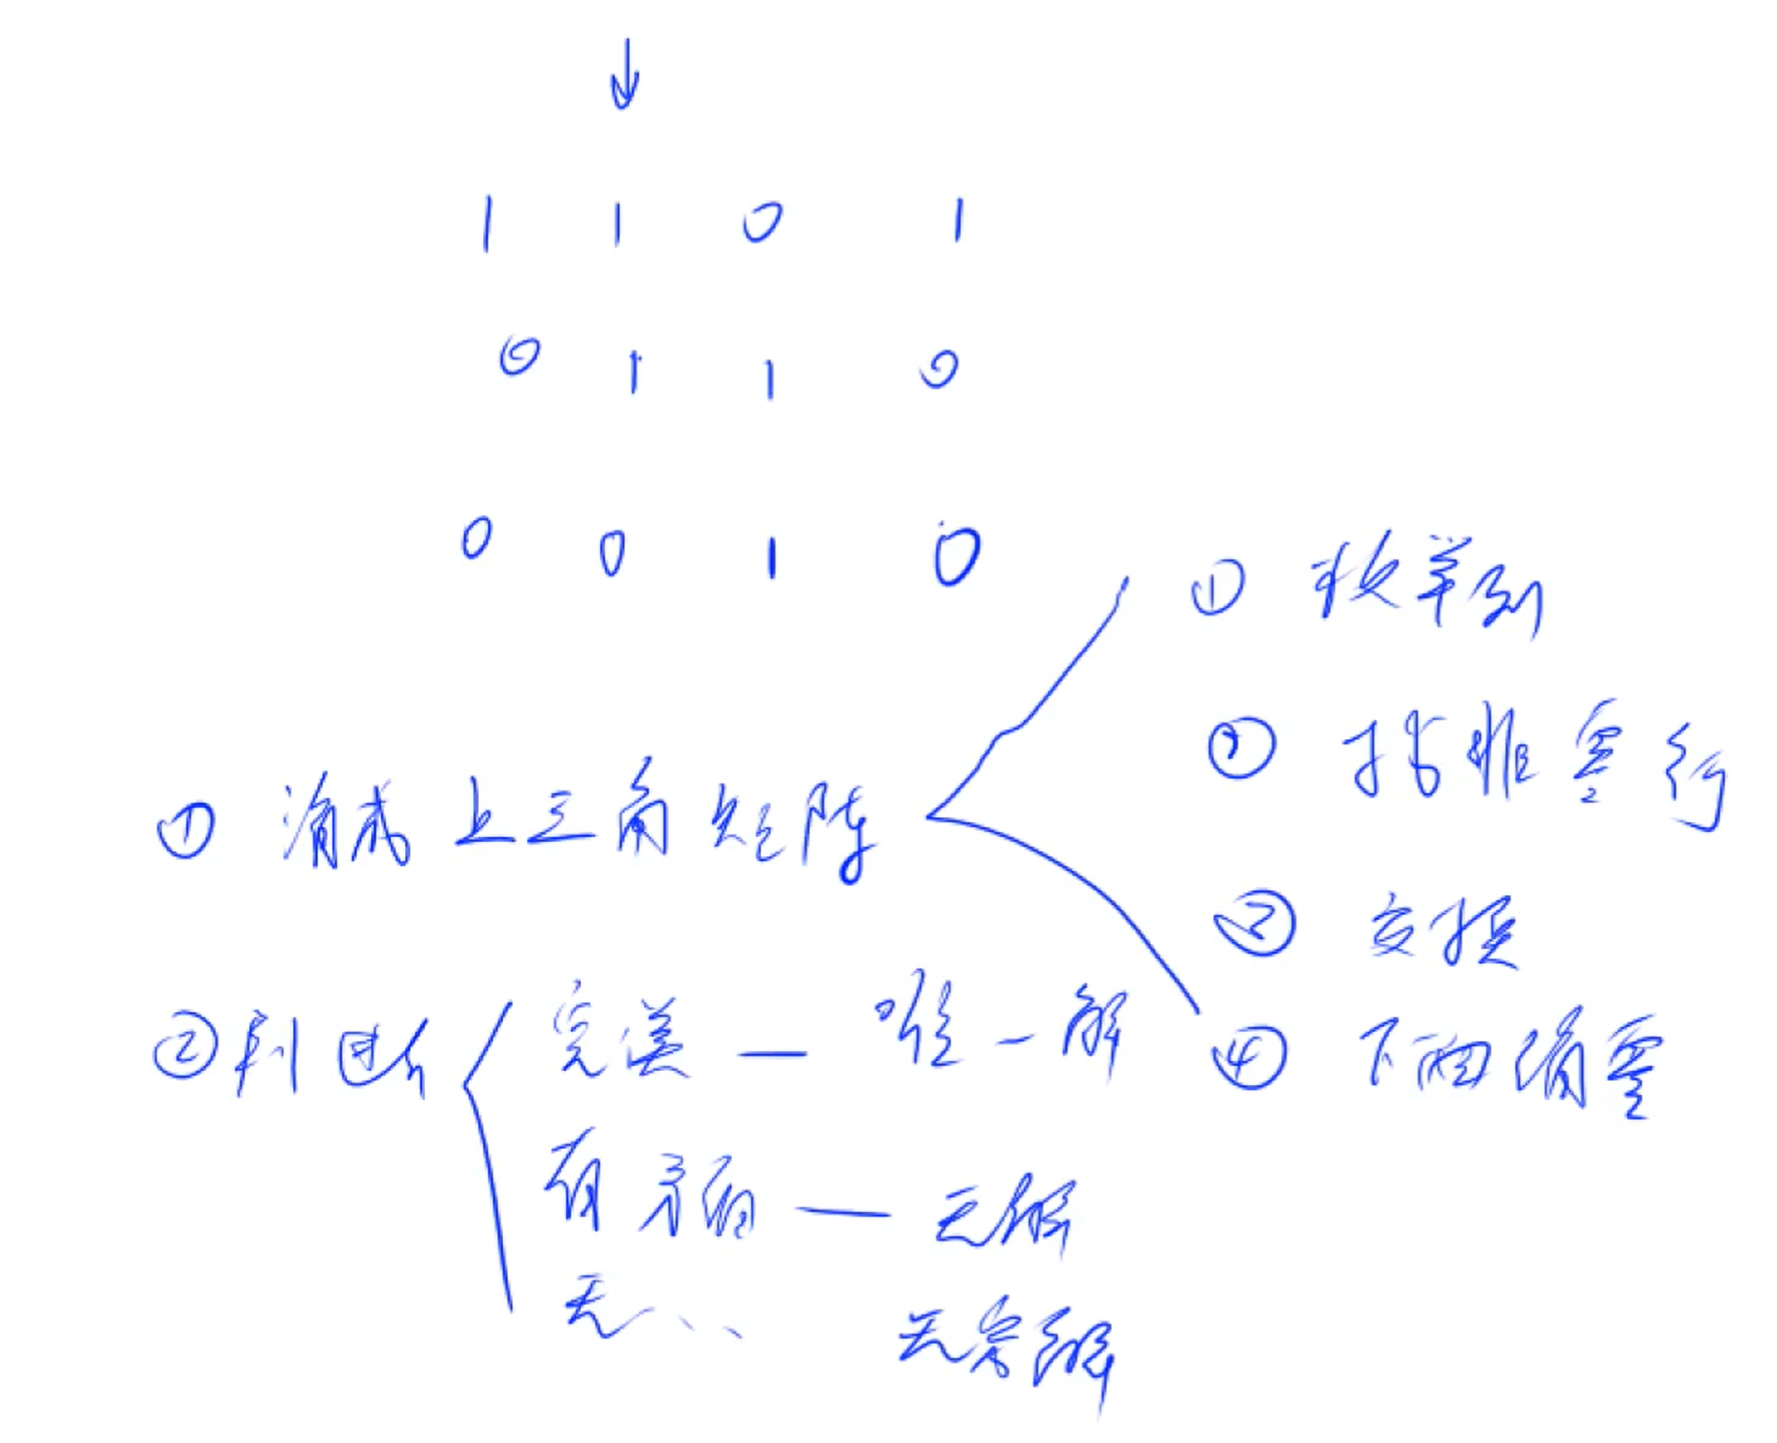 ↓
1 1 0 1
0 1 1 0
0 0 1 0
① 消成上三角矩阵
① 枚举列
② 找非零行
③ 交换
④ 下面消零
② 判断
完美 — 唯一解
有矛盾 — 无解
无、、、 无穷解